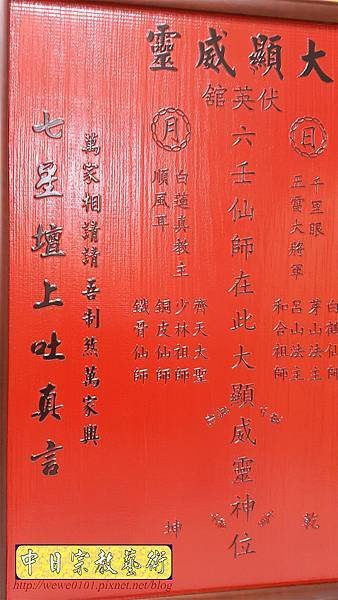 大顯威靈
伏
英
舘
六壬仙師在此大顯威靈神位
日
月
千里眼
五雷大將軍
白蓮真教主
順風耳
白鶴仙師
茅山法主
呂山法主
和合祖師
齊天大聖
少林祖師
銅皮仙師
鐵骨仙師
乾
坤
萬家相請請吾制煞萬家興
七星壇上吐真言
中日宗教藝術
http://wewe0101.pixnet.net/blog